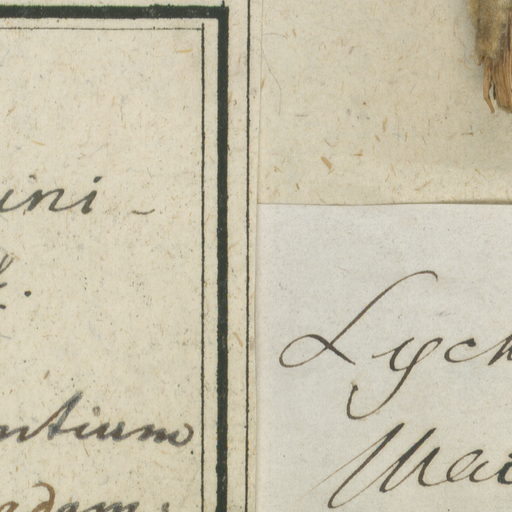 ini -
ntium
adam:
Lych
Mai